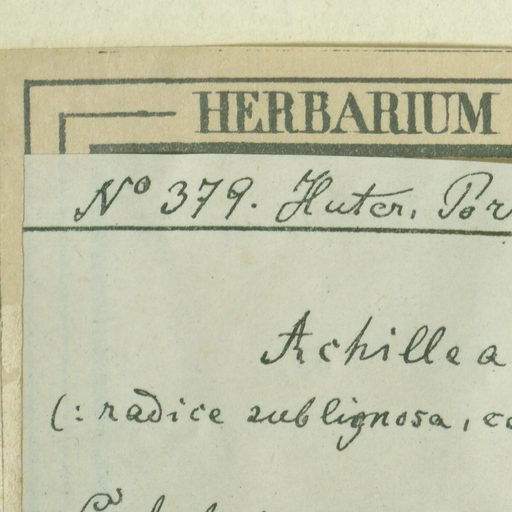 HERBARIUM
No 379. Huter, Por
Achillea
(: radice sublignosa, co